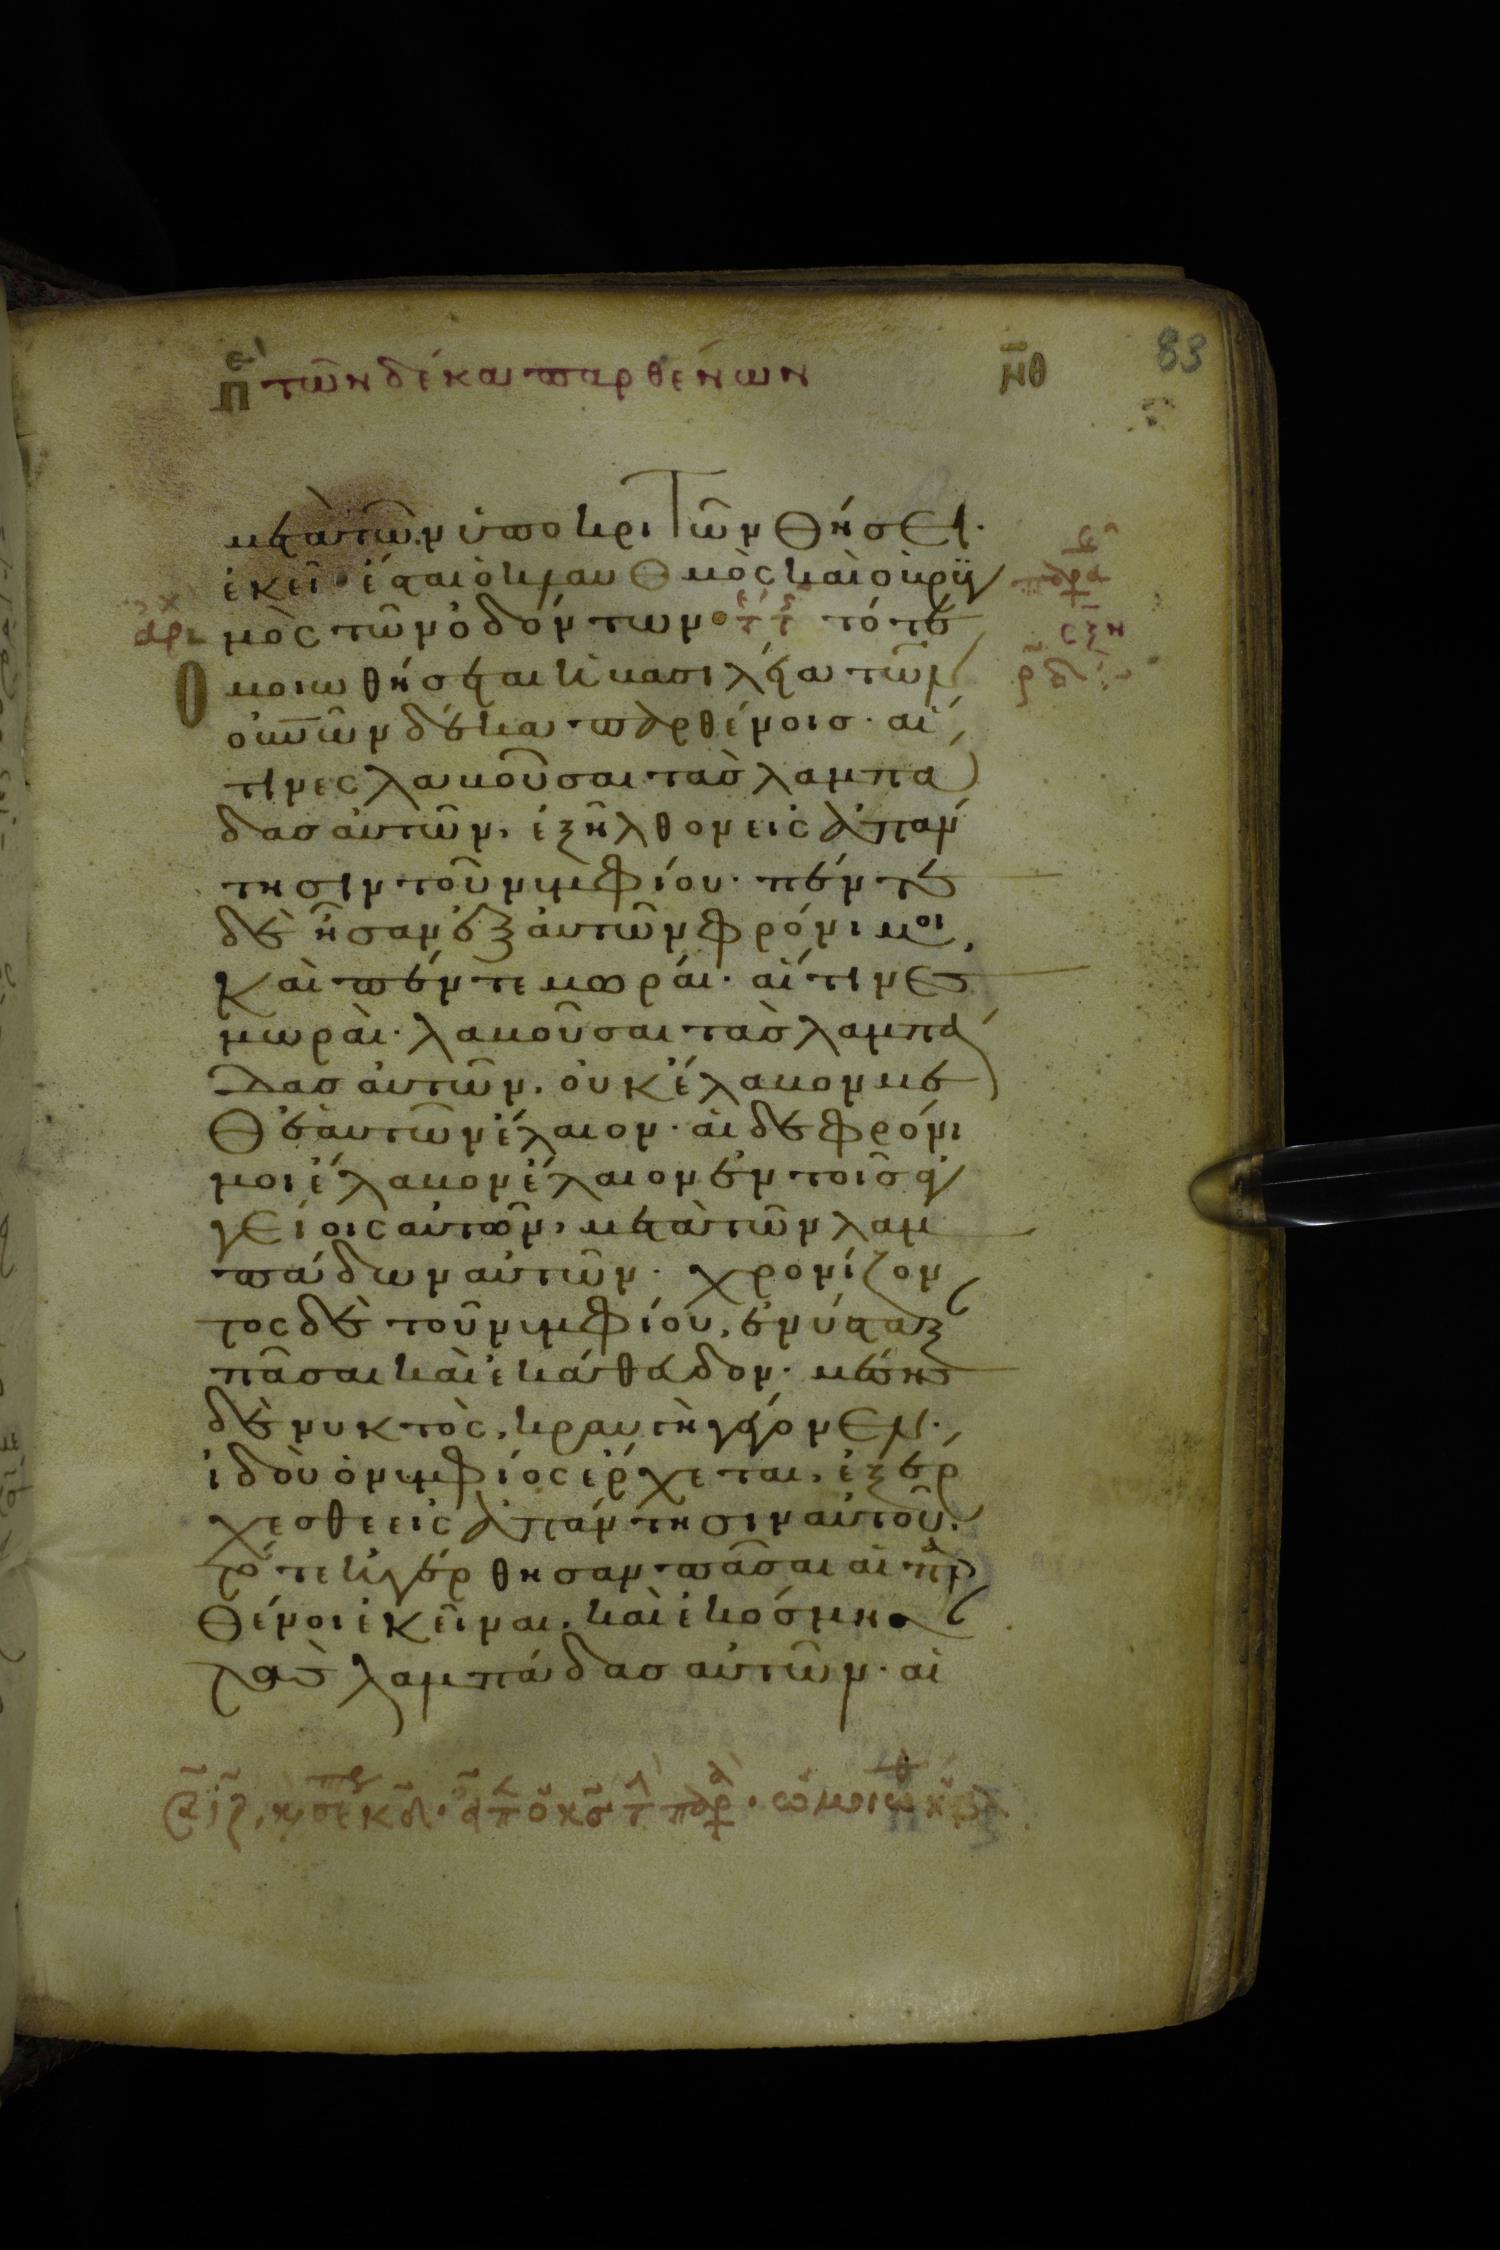 πε τῶν δέκα παρθένων μθ
83
μετὰ τῶν ὑποκριτῶν θήσει·
ἐκεῖ· ἔσται ὁ κλαυθμὸς καὶ ὁ βρυ
μὸς τῶν ὀδόντων· τότε
αρχ
Ὁμοιωθήσεται ἡ βασιλεία τῶν
οὐνῶν δέκα παρθένοις· αἵ
τινες λαβοῦσαι τὰς λαμπά
δας αὐτῶν, ἐξῆλθον εἰς ἀπάν
τησιν τοῦ νυμφίου· πέντε
δὲ ἦσαν ἐξ αὐτῶν φρόνιμοι,
καὶ πέντε μωραί· αἵτινες
μωραὶ· λαβοῦσαι τὰς λαμπά
δας αὐτῶν, οὐκ ἔλαβον με
θ' ἑαυτῶν ἔλαιον· αἱ δὲ φρόνι
μοι ἔλαβον ἔλαιον ἐν τοῖς ἀγ
γείοις αὐτῶν, μετὰ τῶν λαμ
πάδων αὐτῶν· χρονίζον
τος δὲ τοῦ νυμφίου, ἐνύσταξ
πᾶσαι καὶ ἐκάθευδον· μέσης
δὲ νυκτὸς, κραυγὴ γέγονεν·
ἰδοὺ ὁ νυμφίος ἔρχεται, ἐξέρ
χεσθε εἰς ἀπάντησιν αὐτοῦ·
τότε ἠγέρθησαν πᾶσαι αἱ παρ
θένοι ἐκεῖναι, καὶ ἐκόσμησαν
τὰς λαμπάδας αὐτῶν· αἱ